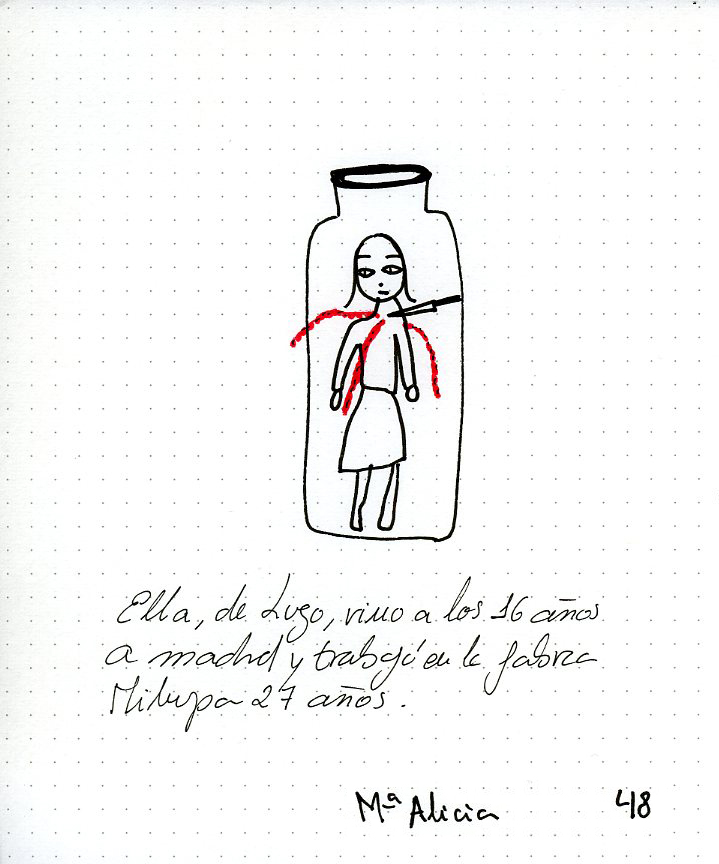 Ella, de Lugo, vino a los 16 años
a madrid y trabajó en la fabrica
Milupa 27 años.
Mª Alicia
48